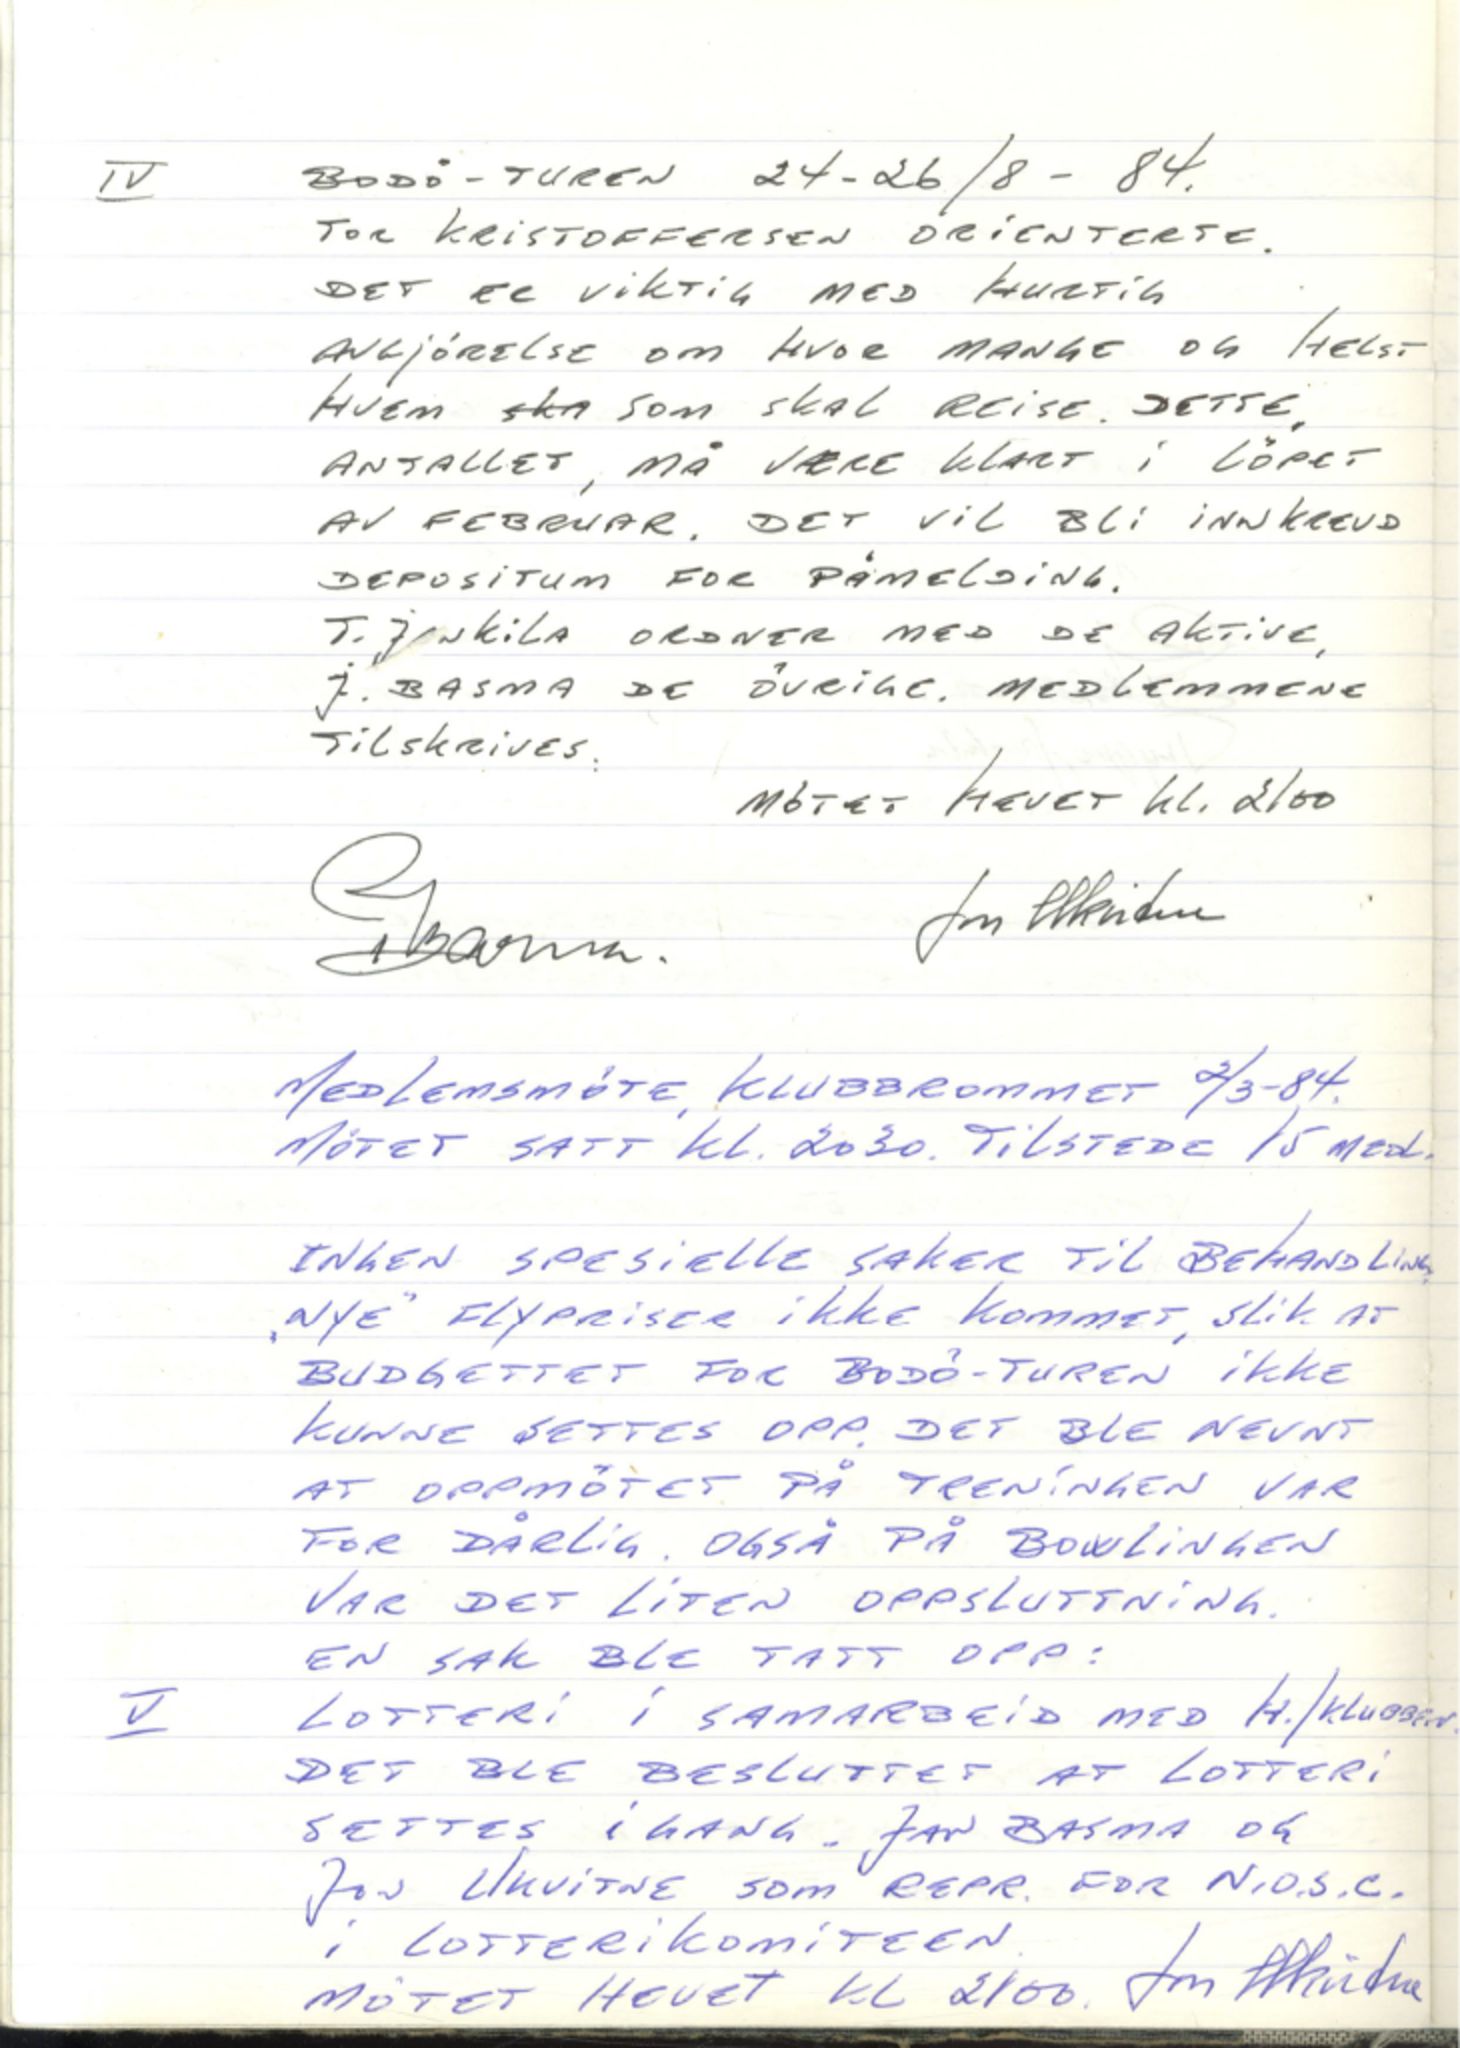 IV BODÖ-TUREN 24-26/8-84.
TOR KRISTOFFERSEN ORIENTERTE.
DET ER VIKTIG MED HURTIG
AVGJÖRELSE OM HVOR MANGE OG HELST
HVEM ska SOM SKAL REISE. DETTE,
ANTALLET, MÅ VÆRE KLART I LÖPET
AV FEBRUAR. DET VIL BLI INNKREVD
DEPOSITUM FOR PÅMELDING.
T. Junkila ORDNER MED DE AKTIVE,
J. BASMA DE ÖVRIGE. MEDLEMMENE
TILSKRIVES.
MÖTET HEVET KL. 2100
JBasma. Jon Ulkvitne
MEDLEMSMÖTE, KLUBBROMMET 2/3-84.
MÖTET SATT KL. 2030. TILSTEDE 15 MEDL.
INGEN SPESIELLE SAKER TIL BEHANDLING.
„NYE" FLYPRISER IKKE KOMMET, SLIK AT
BUDGETTET FOR BODÖ-TUREN IKKE
KUNNE SETTES OPP. DET BLE NEVNT
AT OPPMÖTET PÅ TRENINGEN VAR
FOR DÅRLIG. OGSÅ PÅ BOWLINGEN
VAR DET LITEN OPPSLUTTNING.
EN SAK BLE TATT OPP:
V LOTTERI I SAMARBEID MED H./KLUBBEN.
DET BLE BESLUTTET AT LOTTERI
SETTES IGANG. JAN BASMA OG
JON ULKVITNE SOM REPR. FOR N.O.S.C.
I LOTTERIKOMITEEN.
MÖTET HEVET KL 2100. Jon Ulkvitne